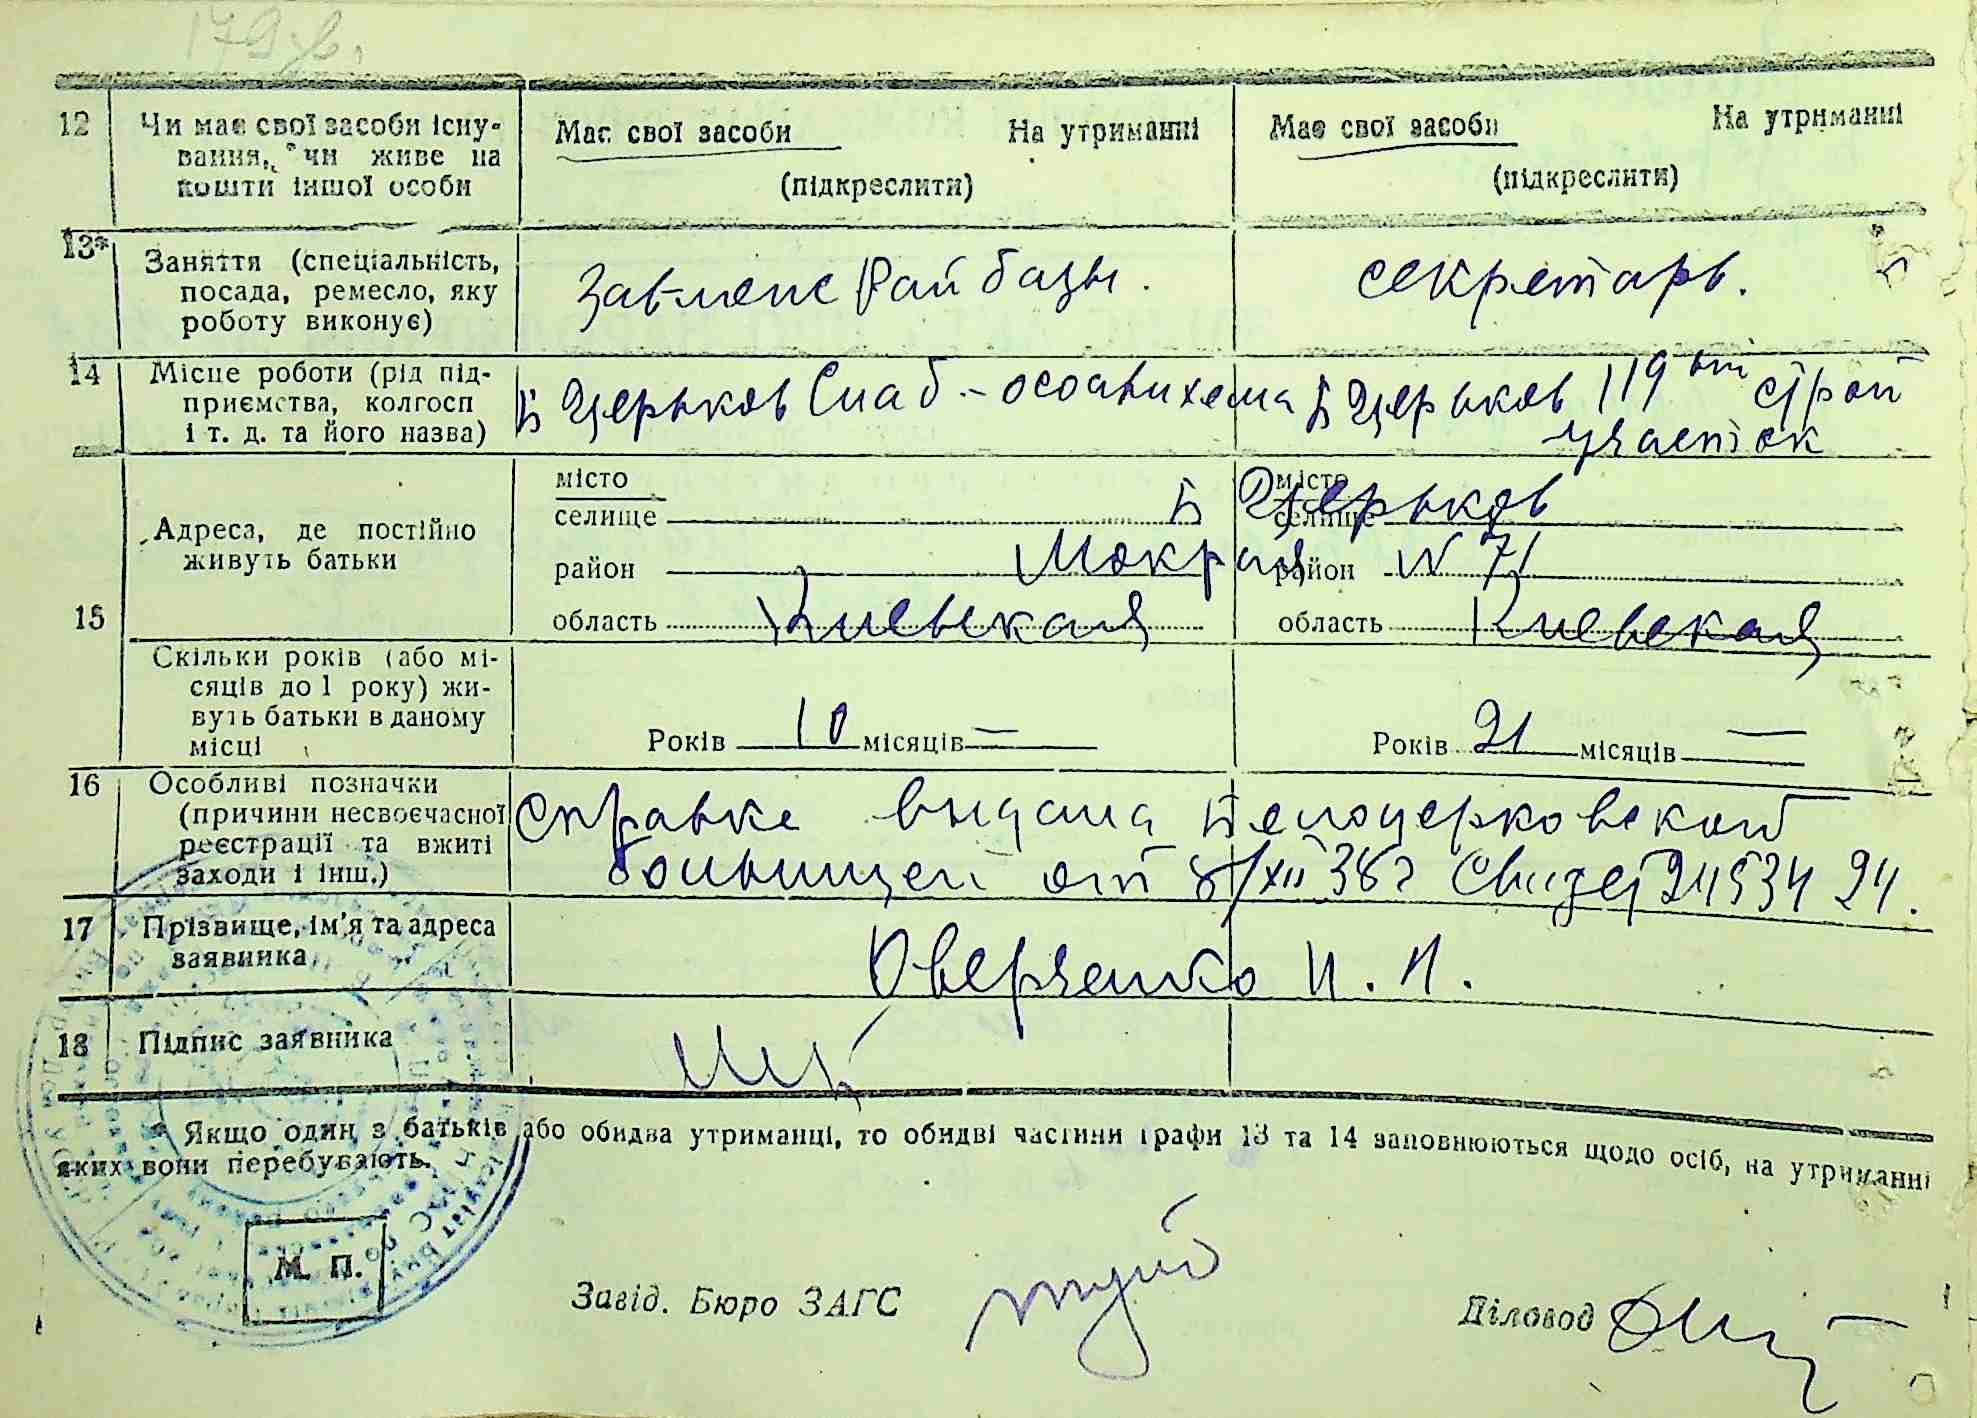 179 в.
12 Чи має свої засоби існу-
вання, чи живе на
кошти іншої особи
Має свої засоби На утриманні
(підкреслити)
Має свої засоби На утриманні
(підкреслити)
13* Заняття (спеціальність,
посада, ремесло, яку
роботу виконує)
Рай базы.
секретарь.
14 Місце роботи (рід під-
приємства, колгосп
і т. д. та його назва)
Б Церьков Снаб - осоавихема
Б Церьков 119 строй
участок
15 Адреса, де постійно
живуть батьки
місто
селище
район
область Киевская
місто
селище
район
область Киевская
Б Церьков
Мокрая N 71
Скільки років (або мі-
сяців до 1 року) жи-
вуть батьки в даному
місці
Років 10 місяців —
Років 21 місяців —
16 Особливі позначки
(причини несвоєчасної
реєстрації та вжиті
заходи і інш.)
Справка выдана Белоцерковской
больницей от 8/XII 38г
17 Прізвище, ім'я та адреса
заявника
Оверченко
18 Підпис заявника
* Якщо один з батьків або обидва утриманці, то обидві частини графи 13 та 14 заповнюються щодо осіб, на утриманні
яких вони перебувають.
М. П.
Завід. Бюро ЗАГС
Діловод